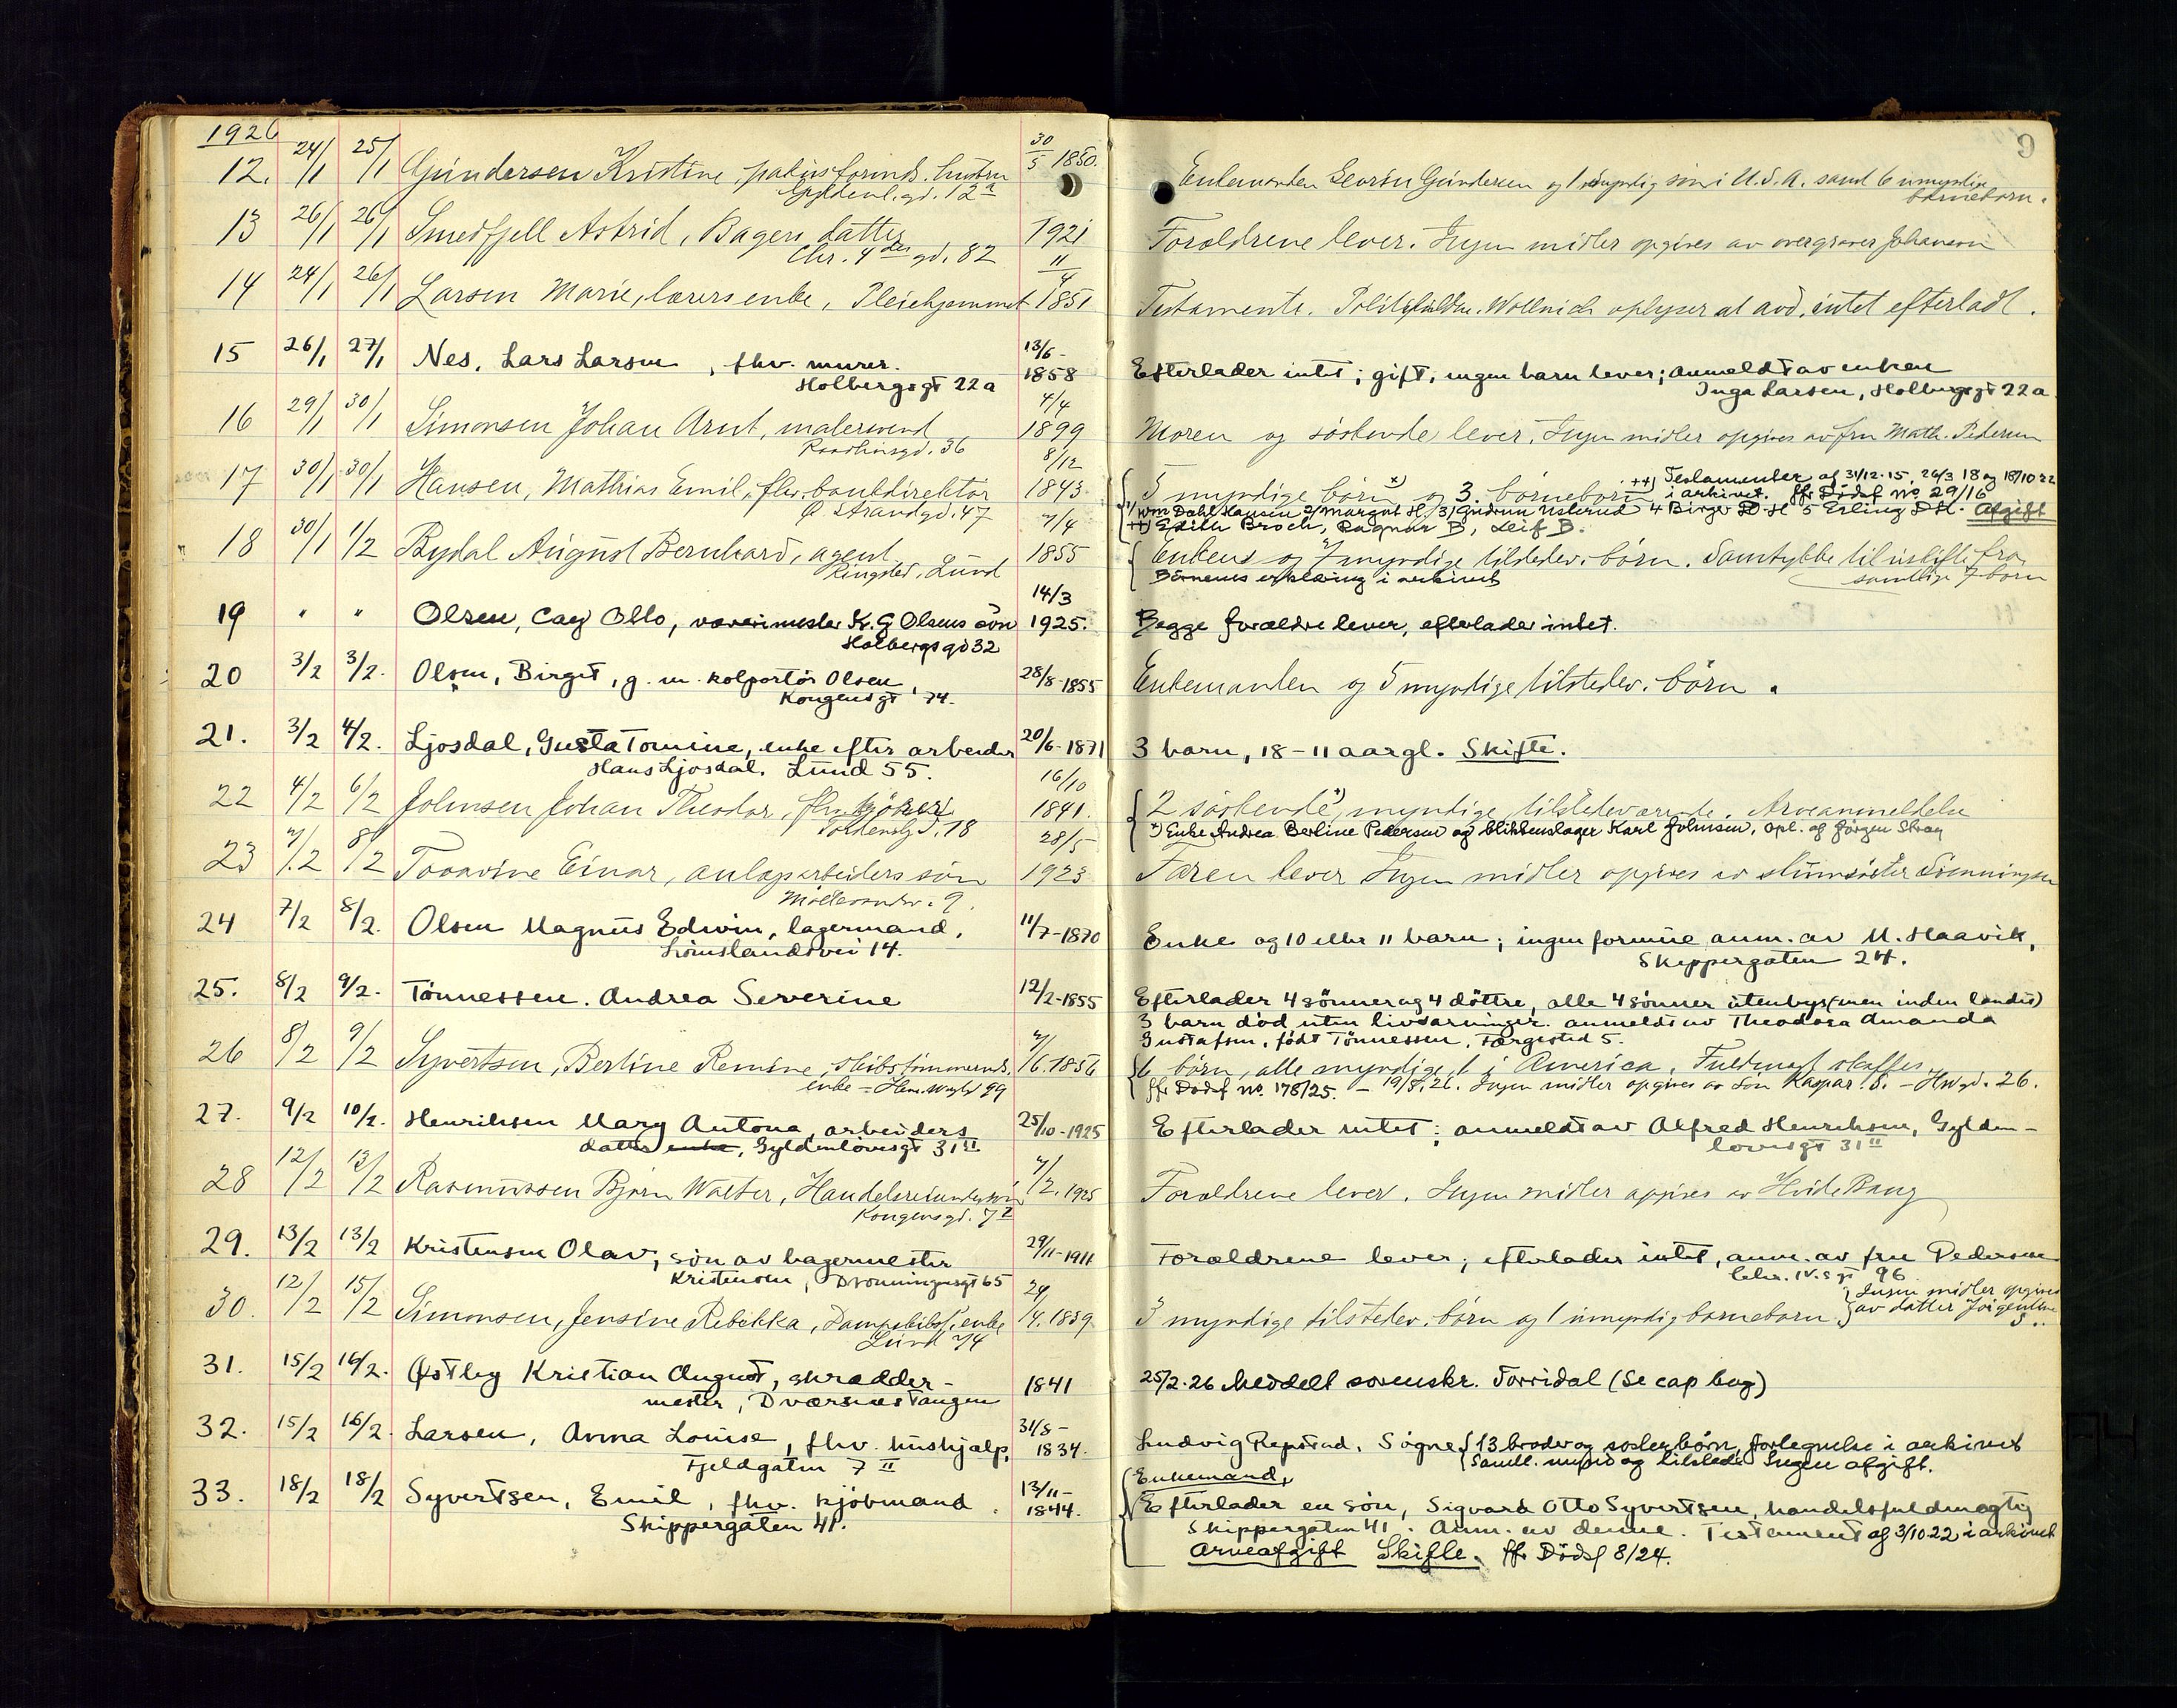 1926
12. 24/1 25/1 Gundersen Kristine, hustru 30/5 1850.
Gyldenl. gd. 12a
13 26/1 26/1 Smedfjell Astrid, Bagers datter 1921
Chr. 4des gd. 82
14 24/1 26/1 Larsen Marie, lærersenke, Pleiehjemmet 11/4 1851
15 26/1 27/1 Nes, Lars Larsen, fhv. murer. 13/6- 1858
Holbergsgt 22a
16 29/1 30/1 Simonsen Johan Arnt, malersvend 4/4 1899
Raadhusgd. 36
17 30/1 30/1 Hansen, Mathias Emil, fhv. bankdirektør 8/12 1843
Ø Strandgd. 47
18 30/1 1/2 Rydal August Bernhard, agent 7/4 1855
Ringsted, Lund
19 " " Olsen, Cay Otto, K. G Olsens søn 14/3 1925.
Holbergsgd 32
20 3/2 3/2. Olsen, Birgit, g. m. kolportør Olsen 28/8-1855
Kongensgt 74.
21. 3/2 4/2. Ljosdal, Gusta Tomine, enke efter arbeider 20/6-1871
Hans Ljosdal. Lund 55.
22 4/2 6/2 Johnsen Johan Theodor, fhv. 16/10 1841.
Tordenskj. 18
23 7/2 8/2 Einar, anlægsarbeiders søn 28/5 1923
9.
24 7/2 8/2. Olsen Magnus Edwin, lagermand, 11/7-1870
14.
25. 8/2 9/2. Tönnessen. Andrea Severine 12/2-1855
26 8/2 9/2 Syvertsen, Berline Remine, skibstømmermds. 7/6.1856
enke - Hen. Wergld 99
27. 9/2 10/2. Henriksen Mary Antona, arbeiders 25/10-1925
datter enke, Gyldenløvesgt 31 II
28 12/2 13/2 Rasmussen Bjørn Walter, 7/2. 1925
Kongensgd. 7 I
29. 13/2 13/2 Kristensen Olav, søn av bagermester 29/11-1911
Kristensen, Dronningensgt 65
30. 12/2 15/2 Simonsen, Jensine Rebekka, enke 24/4.1839
Lund 74
31. 15/2 16/2. Østby Kristian August, skrædder- 1841
mester, Dværsnestangen
32. 15/2 16/2. Larsen, Anna Louise, fhv. hushjælp, 31/8- 1834.
Fjeldgaten 7 II
33. 18/2 18/2 Syvertsen, Emil, fhv. kjøbmand. 13/11- 1844.
Skippergaten 41.
9
Enkemanden Gundersen og 1 myndig søn i U.S.A. samt 6 umyndige
børnebørn.
Forældrene lever. Ingen midler opgives av Johansen
Testamente. oplyser at avd. intet efterladt.
Efterlader intet; gift, ingen barn lever; anmeldt av enken
Inga Larsen, Holbergsgt 22a
Moren og søskende lever. Ingen midler opgives av fru Math. Pedersen
5 myndige børn x) og 3. børnebørn ++) Testamenter af 31/12.15, 26/3 18 og 18/10 22
i arkivet. jfr Dødsf No 29/16
1) Wm Dahl Hansen 2) Margrit H. 3) Gudrun Usterud 4 Birger D H 5 Erling D H. Afgift
++) Edith Broch, Ragnar B, Leif B.
Enken og 7 myndige tilstedev. børn. Samtykke til uskifte fra
samtlige 7 børn
Børnenes erklæring i arkivet
Begge forældre lever, efterlader intet.
Enkemanden og 5 myndige tilstedev. børn.
3 barn, 18-11 aargl. Skifte.
2 søskende x), myndige, tilstedeværende. Arveanmeldelse
x) Enke Andrea Berline Pedersen og blikkenslager Karl Johnsen, opl. af Jørgen Stray
Faren lever Ingen midler opgives av
Enke og 10 eller 11 barn; ingen formue anm. av M. Haavik,
Skippergaten 24.
Efterlader 4 sønner og 4 døttre, alle 4 sønner utenbys (men inden landet)
3 barn død uten livsarvinger. anmeldt av Theodora Amanda
Gustafsen, født Tönnessen, Færgested 5.
6 børn, alle myndige, 1 i America. Fuldmagt skaffes.
jfr Dødsf No. 178/25. - 19/5.26. Ingen midler opgives av søn Kaspar S. - HWgd. 26.
Efterlader intet; anmeldt av Alfred Henriksen, Gylden-
løvesgt 31 II
Forældrene lever. Ingen midler opgives av Hvide Bang
Forældrene lever; efterlader intet, anm. av fru Pedersen
Chr. IV.s gt 96
3 myndige tilstedev. børn og 1 umyndig børnebarn. Ingen midler opgives
av datter Jørgentine
S..
25/2.26 Meddelt sorenskr. Torridal (Se cap bog)
Ludvig Repstad, Søgne 13 broder og søsterbørn, fortegnelse i arkivet
Samtl. mynd og tilstede Ingen afgift.
Enkemand,
Efterlader en søn, Sigvard Otto Syvertsen, handelsfuldmægtig
Skippergaten 41. Anm. av denne. Testament af 3/10 22 i arkivet
Arveafgift Skifte. jfr Dødsf 8/24.